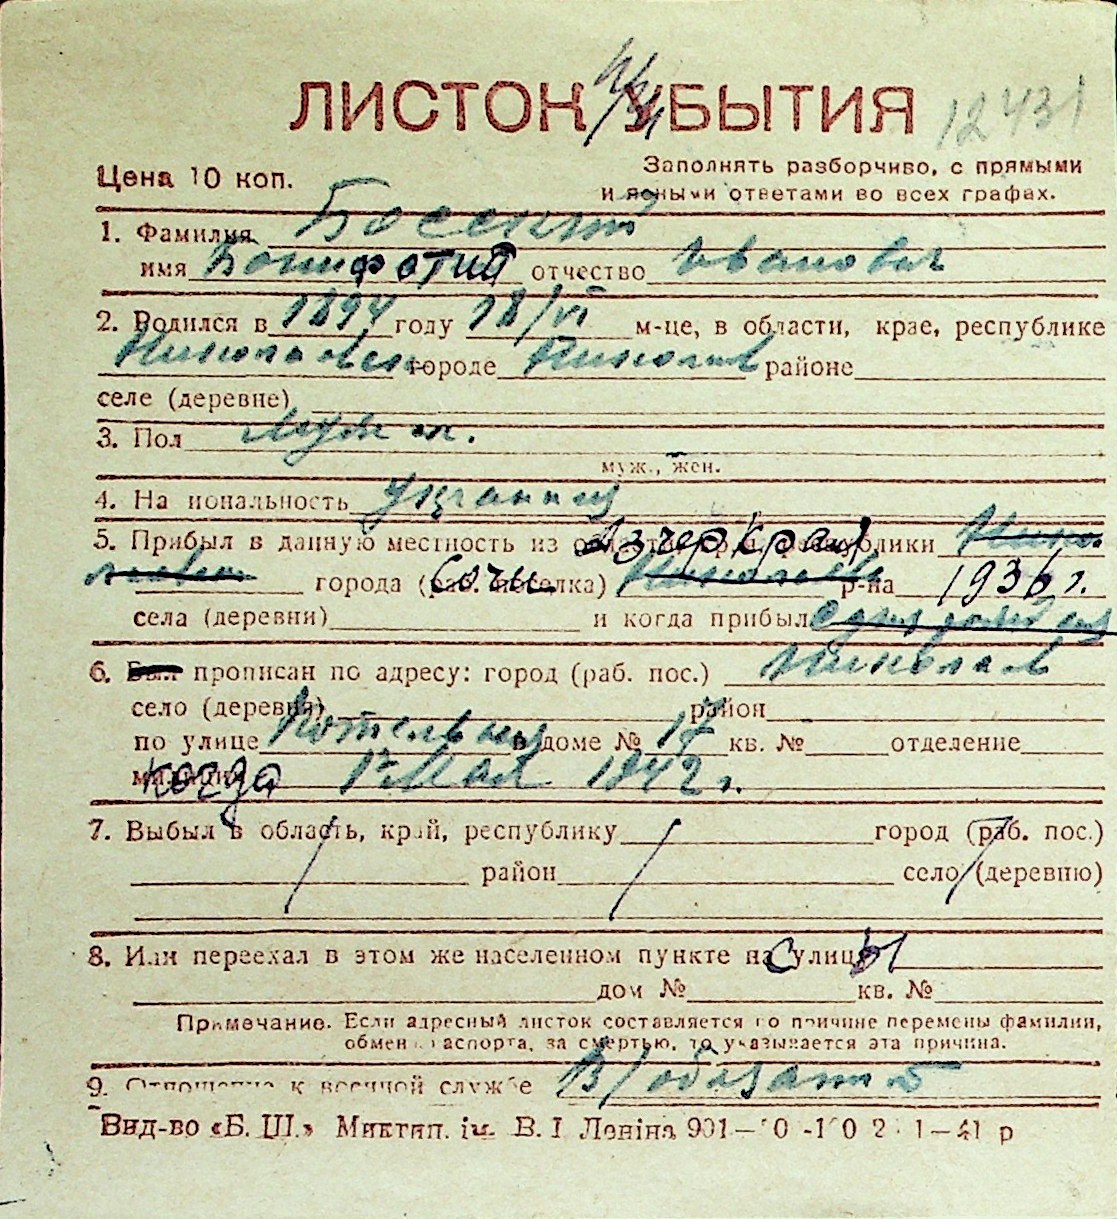 ЛИСТОК УБЫТИЯ 12431
Цена 10 коп.
Заполнять разборчиво, с прямыми
и ясными ответами во всех графах.
1. Фамилия Босенький
имя Бонифатий отчество Иванович
2. Родился в 1894 году 18/VI м-це, в области, крае, республике
Николаевск городе Николаев районе
селе (деревне)
3. Пол мужск.
муж., жен.
4. Национальность Украинец
5. Прибыл в данную местность из области, края, республики
города (раб. поселка) Сочи р-на 1936 г.
села (деревни) и когда прибыл
6. Был прописан по адресу: город (раб. пос.) Николаев
село (деревня) район
по улице Котельная в доме № 17 кв. № отделение
милиции когда 1го Мая 1942 г.
7. Выбыл в область, край, республику город (раб. пос.)
район село (деревню)
8. Или переехал в этом же населенном пункте на с улицы
дом № кв. №
Примечание. Если адресный листок составляется по причине перемены фамилии,
обмена паспорта, за смертью, то указывается эта причина.
9. Отношение к военной службе В/обязаный
Вид-во «Б. Ш.» Миктип. ім. В. І Леніна